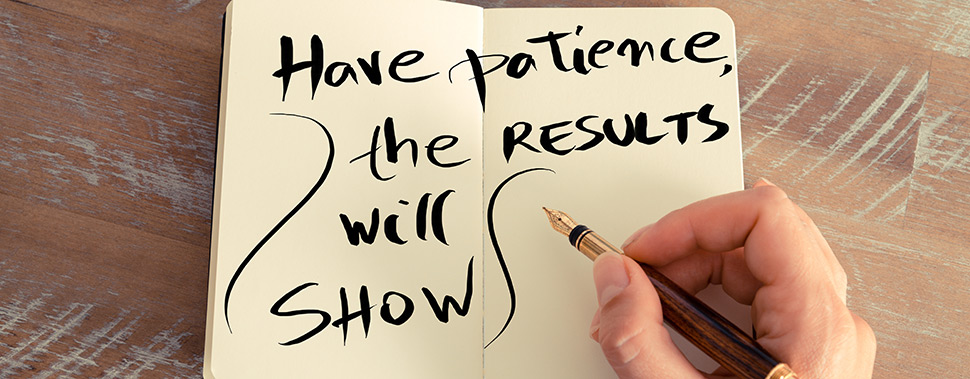 Have patience,
the RESULTS
will
SHOW